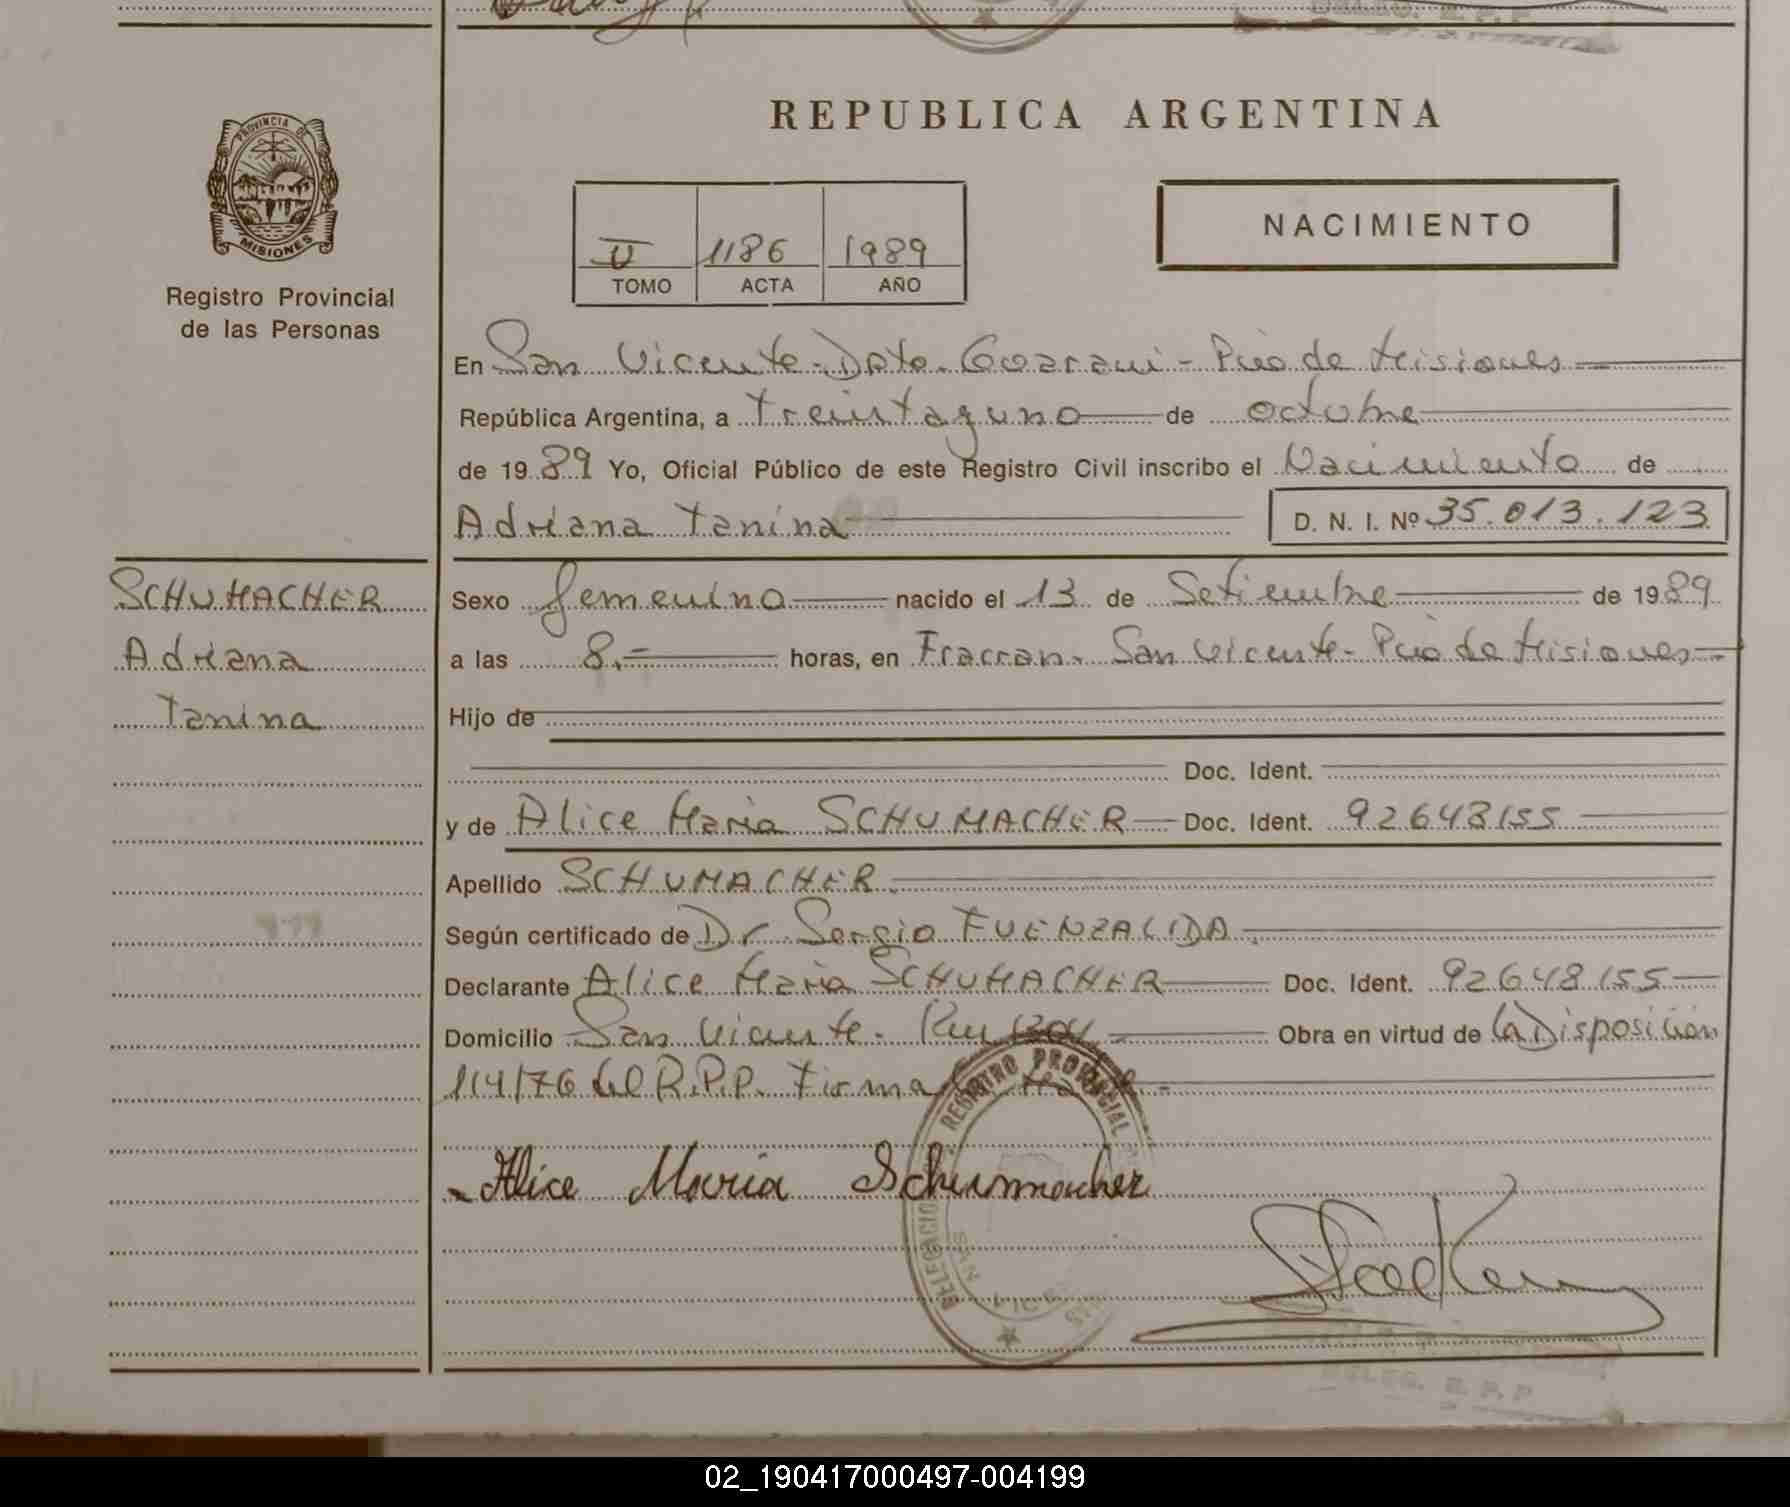 REPUBLICA ARGENTINA
PROVINCIA DE
MISIONES
Registro Provincial
de las Personas
II 1186 1989
TOMO ACTA AÑO
NACIMIENTO
En San Vicente - Dpto. Guarani - Pcia de Misiones
República Argentina, a treintayuno de octubre
de 1989 Yo, Oficial Público de este Registro Civil inscribo el Nacimiento de
Adriana Tanina D. N. I. Nº 35.013.123
SCHUMACHER
Adriana
Tanina
Sexo femenino nacido el 13 de Setiembre de 1989
a las 8.- horas, en Fracran - San Vicente - Pcia de Misiones
Hijo de
Doc. Ident.
y de Alice Maria SCHUMACHER Doc. Ident. 92648155
Apellido SCHUMACHER.
Según certificado de Dr. Sergio FUENZALIDA.
Declarante Alice Maria SCHUMACHER Doc. Ident. 92648155
Domicilio San Vicente - Obra en virtud de la Disposición
114/76 del R.P.P. Firma
REGISTRO PROVINCIAL
- Alice Maria Schummacher
DELEG. R. P. P
02_190417000497-004199